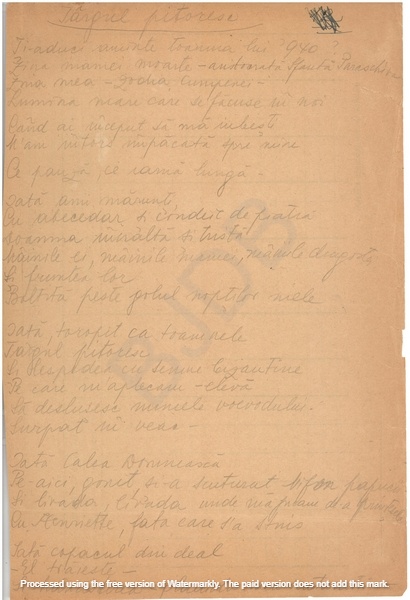 Târgul pitoresc
Ți-aduci aminte toamna lui 940?
Ziua mamei moarte – sfânta Parascheva
Ziua mea – Zodia Cumpenei –
Lumina mare care se făcuse în noi
Când ai început să mă iubești
M'am întors împăcată spre mine
Ce pauză, ce iarnă lungă –
Iată anii mărunți,
Cu abecedar și condei de piatră
Doamna înaltă și tristă
Mâinile ei, mâinile mamei,
Și fruntea lor
Boltită peste golul nopților mele
Iată, toropit ca toamnele
Târgul pitoresc
Și lespedea cu semne bizantine
Pe care m'aplecam – elevă
Să deslușesc numele voevodului
Surpat în veac –
Iată Calea Domnească
Pe-aici, gonit, și-a scuturat
Și livada, livada unde
Cu Henriette, fata care s'a stins
Iată copacul din deal
– El trăiește –
BJDB
Processed using the free version of Watermarkly. The paid version does not add this mark.